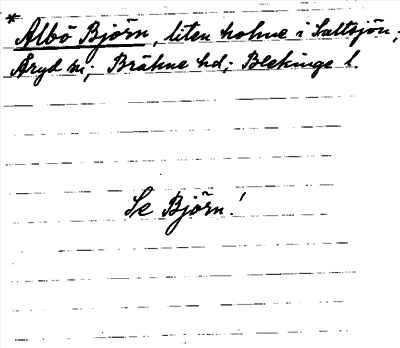 * Albö Björn, liten holme i Saltsjön;
Åryd sn; Bräkne hd; Blekinge l.
Se Björn!